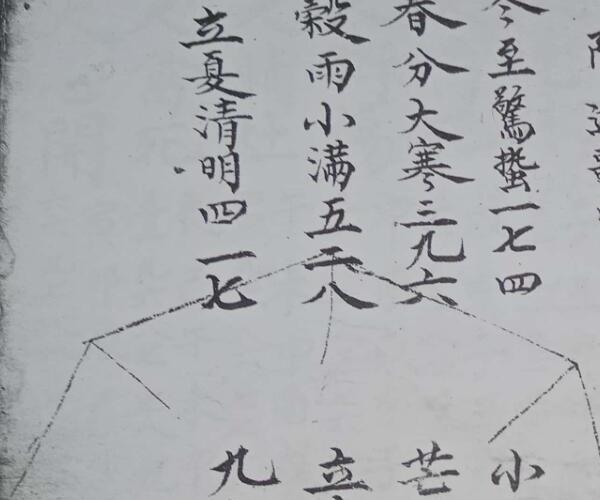 冬至驚蟄一七四
春分大寒三九六
穀雨小满五二八
立夏清明四一七
小
芒
立
九